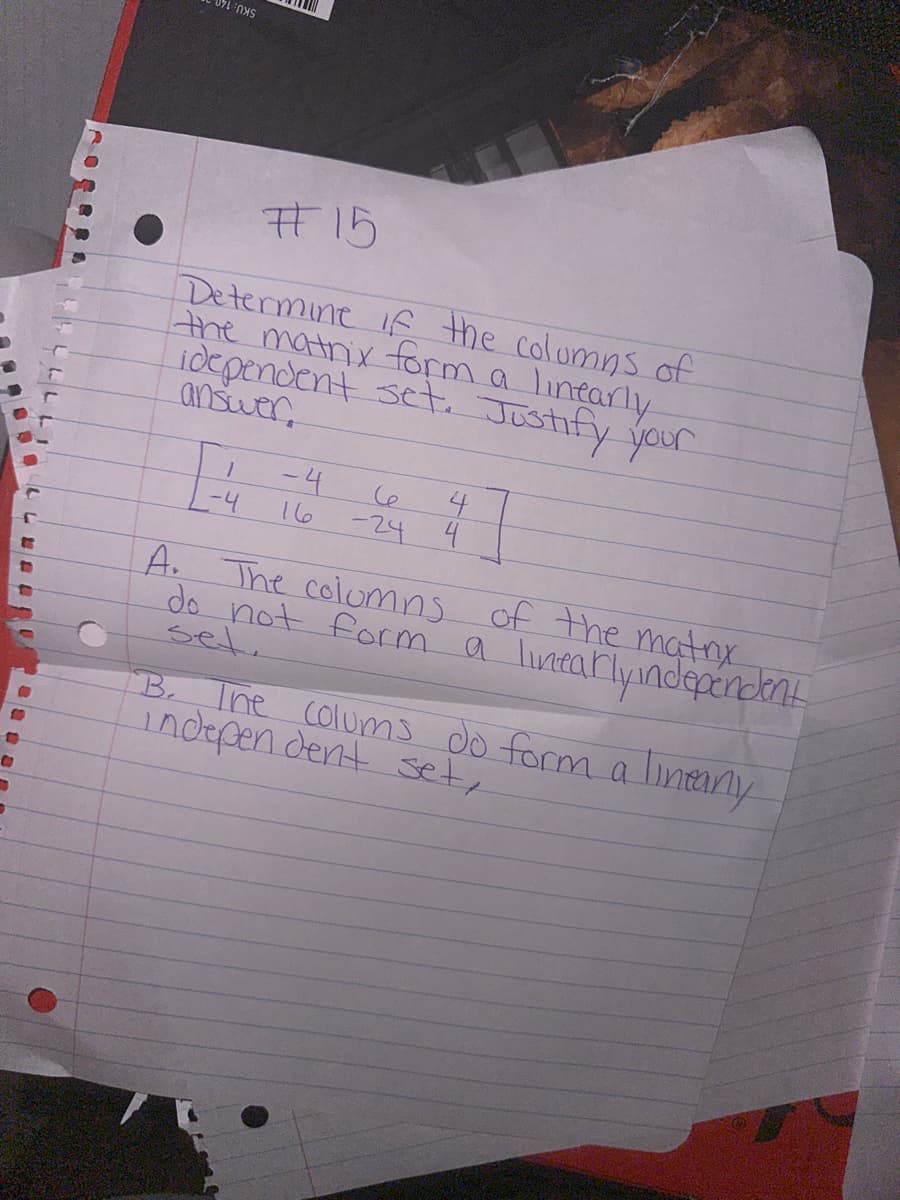 # 15
Determine if the columns of
the matrix form a linearly
idependent set. Justify your
answer.
1 -4 6 4
-4 16 -24 4
A. The columns of the matrix
do not form a linearly independent
set.
B. The colums do form a linearly
independent set,